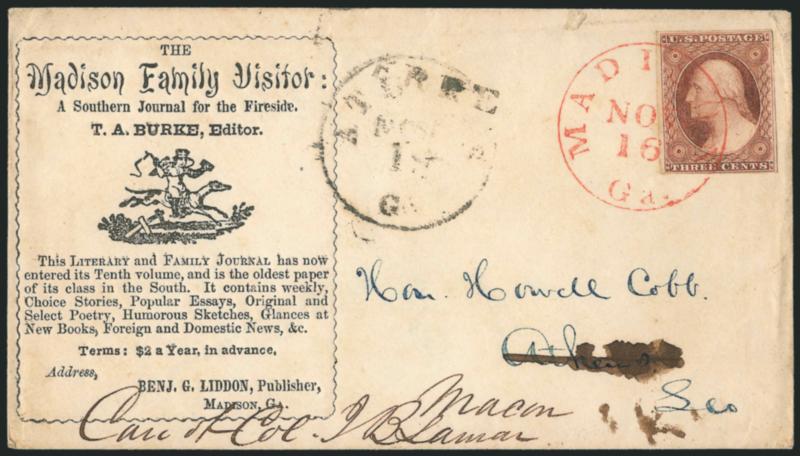 THE
Madison Family Visitor:
A Southern Journal for the Fireside.
T. A. BURKE, Editor.
This LITERARY and FAMILY JOURNAL has now
entered its Tenth volume, and is the oldest paper
of its class in the South. It contains weekly,
Choice Stories, Popular Essays, Original and
Select Poetry, Humorous Sketches, Glances at
New Books, Foreign and Domestic News, &c.
Terms: $2 a Year, in advance.
Address,
BENJ. G. LIDDON, Publisher,
MADISON, GA.
GA
MADI
NO
16
Ga.
U.S. POSTAGE
THREE CENTS
Hon. Howell Cobb.
Athens
Macon
Geo
Care of Col. J B Lamar